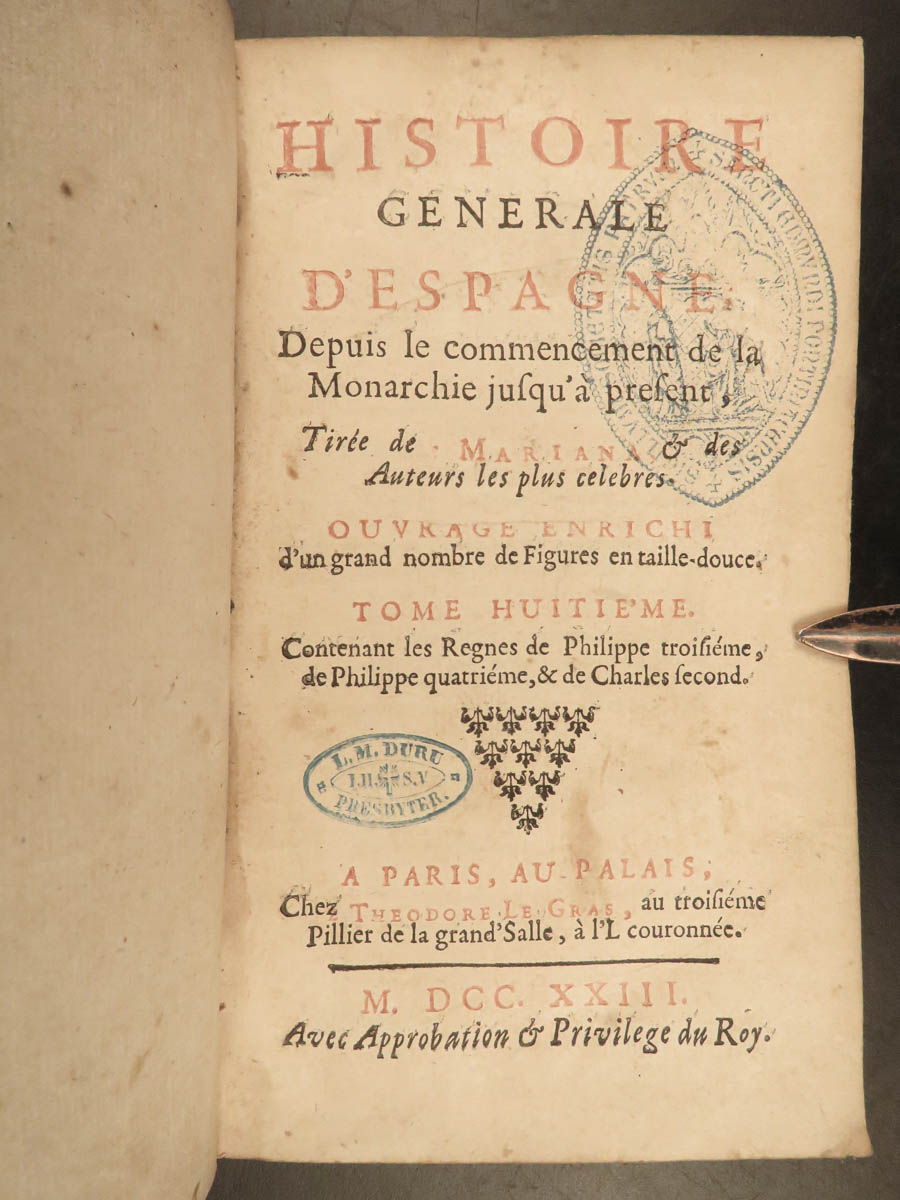 HISTOIRE
GENERALE
D'ESPAGNE.
Depuis le commencement de la
Monarchie juſqu'à preſent,
Tirée de MARIANA & des
Auteurs les plus celebres.
OUVRAGE ENRICHI
d'un grand nombre de Figures en taille-douce.
TOME HUITIE'ME.
Contenant les Regnes de Philippe troiſiéme,
de Philippe quatriéme, & de Charles ſecond.
L. M. DURU
PRESBYTER.
A PARIS, AU PALAIS,
Chez THEODORE LE GRAS, au troiſiéme
Pillier de la grand'Salle, à l'L couronnée.
M. DCC. XXIII.
Avec Approbation & Privilege du Roy.
SANCTI EDMUNDI PONTINIACENSIS